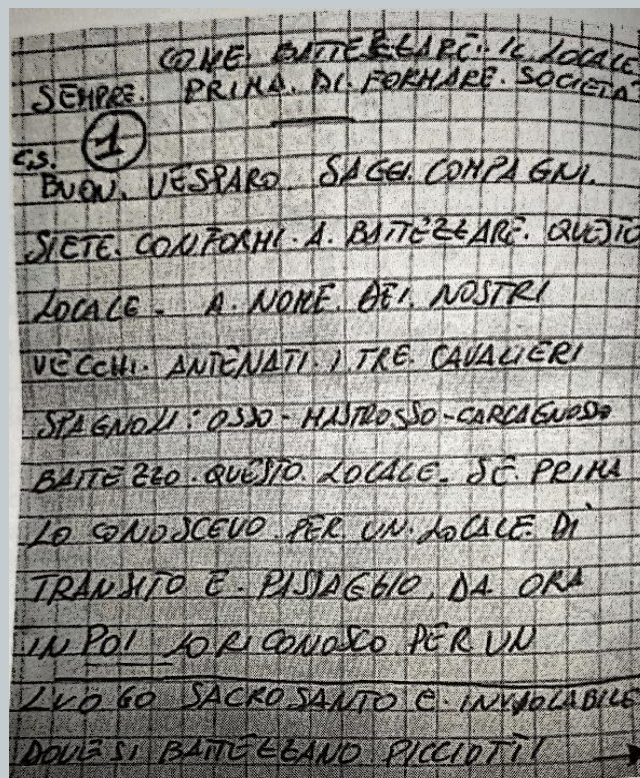 COME. BATTEZZARE.. IL LOCALE
SEMPRE. PRIMA. DI. FORMARE. SOCIETA'
C.S. 1
BUON. VESPARO SAGGI. COMPAGNI.
SIETE. CONFORMI. A. BATTEZZARE. QUESTO
LOCALE. A. NOME. DEI. NOSTRI
VECCHI. ANTENATI. I TRE. CAVALIERI
SPAGNOLI: OSSO-MASTROSSO-CARCAGNOSSO
BATTEZZO. QUESTO. LOCALE. SE PRIMA
LO CONOSCEVO PER UN. LOCALE DI
TRANSITO E. PASSAGGIO, DA ORA
IN POI LO RICONOSCO PER UN
LUOGO SACROSANTO E. INVIOLABILE
DOVE SI BATTEZZANO PICCIOTTI